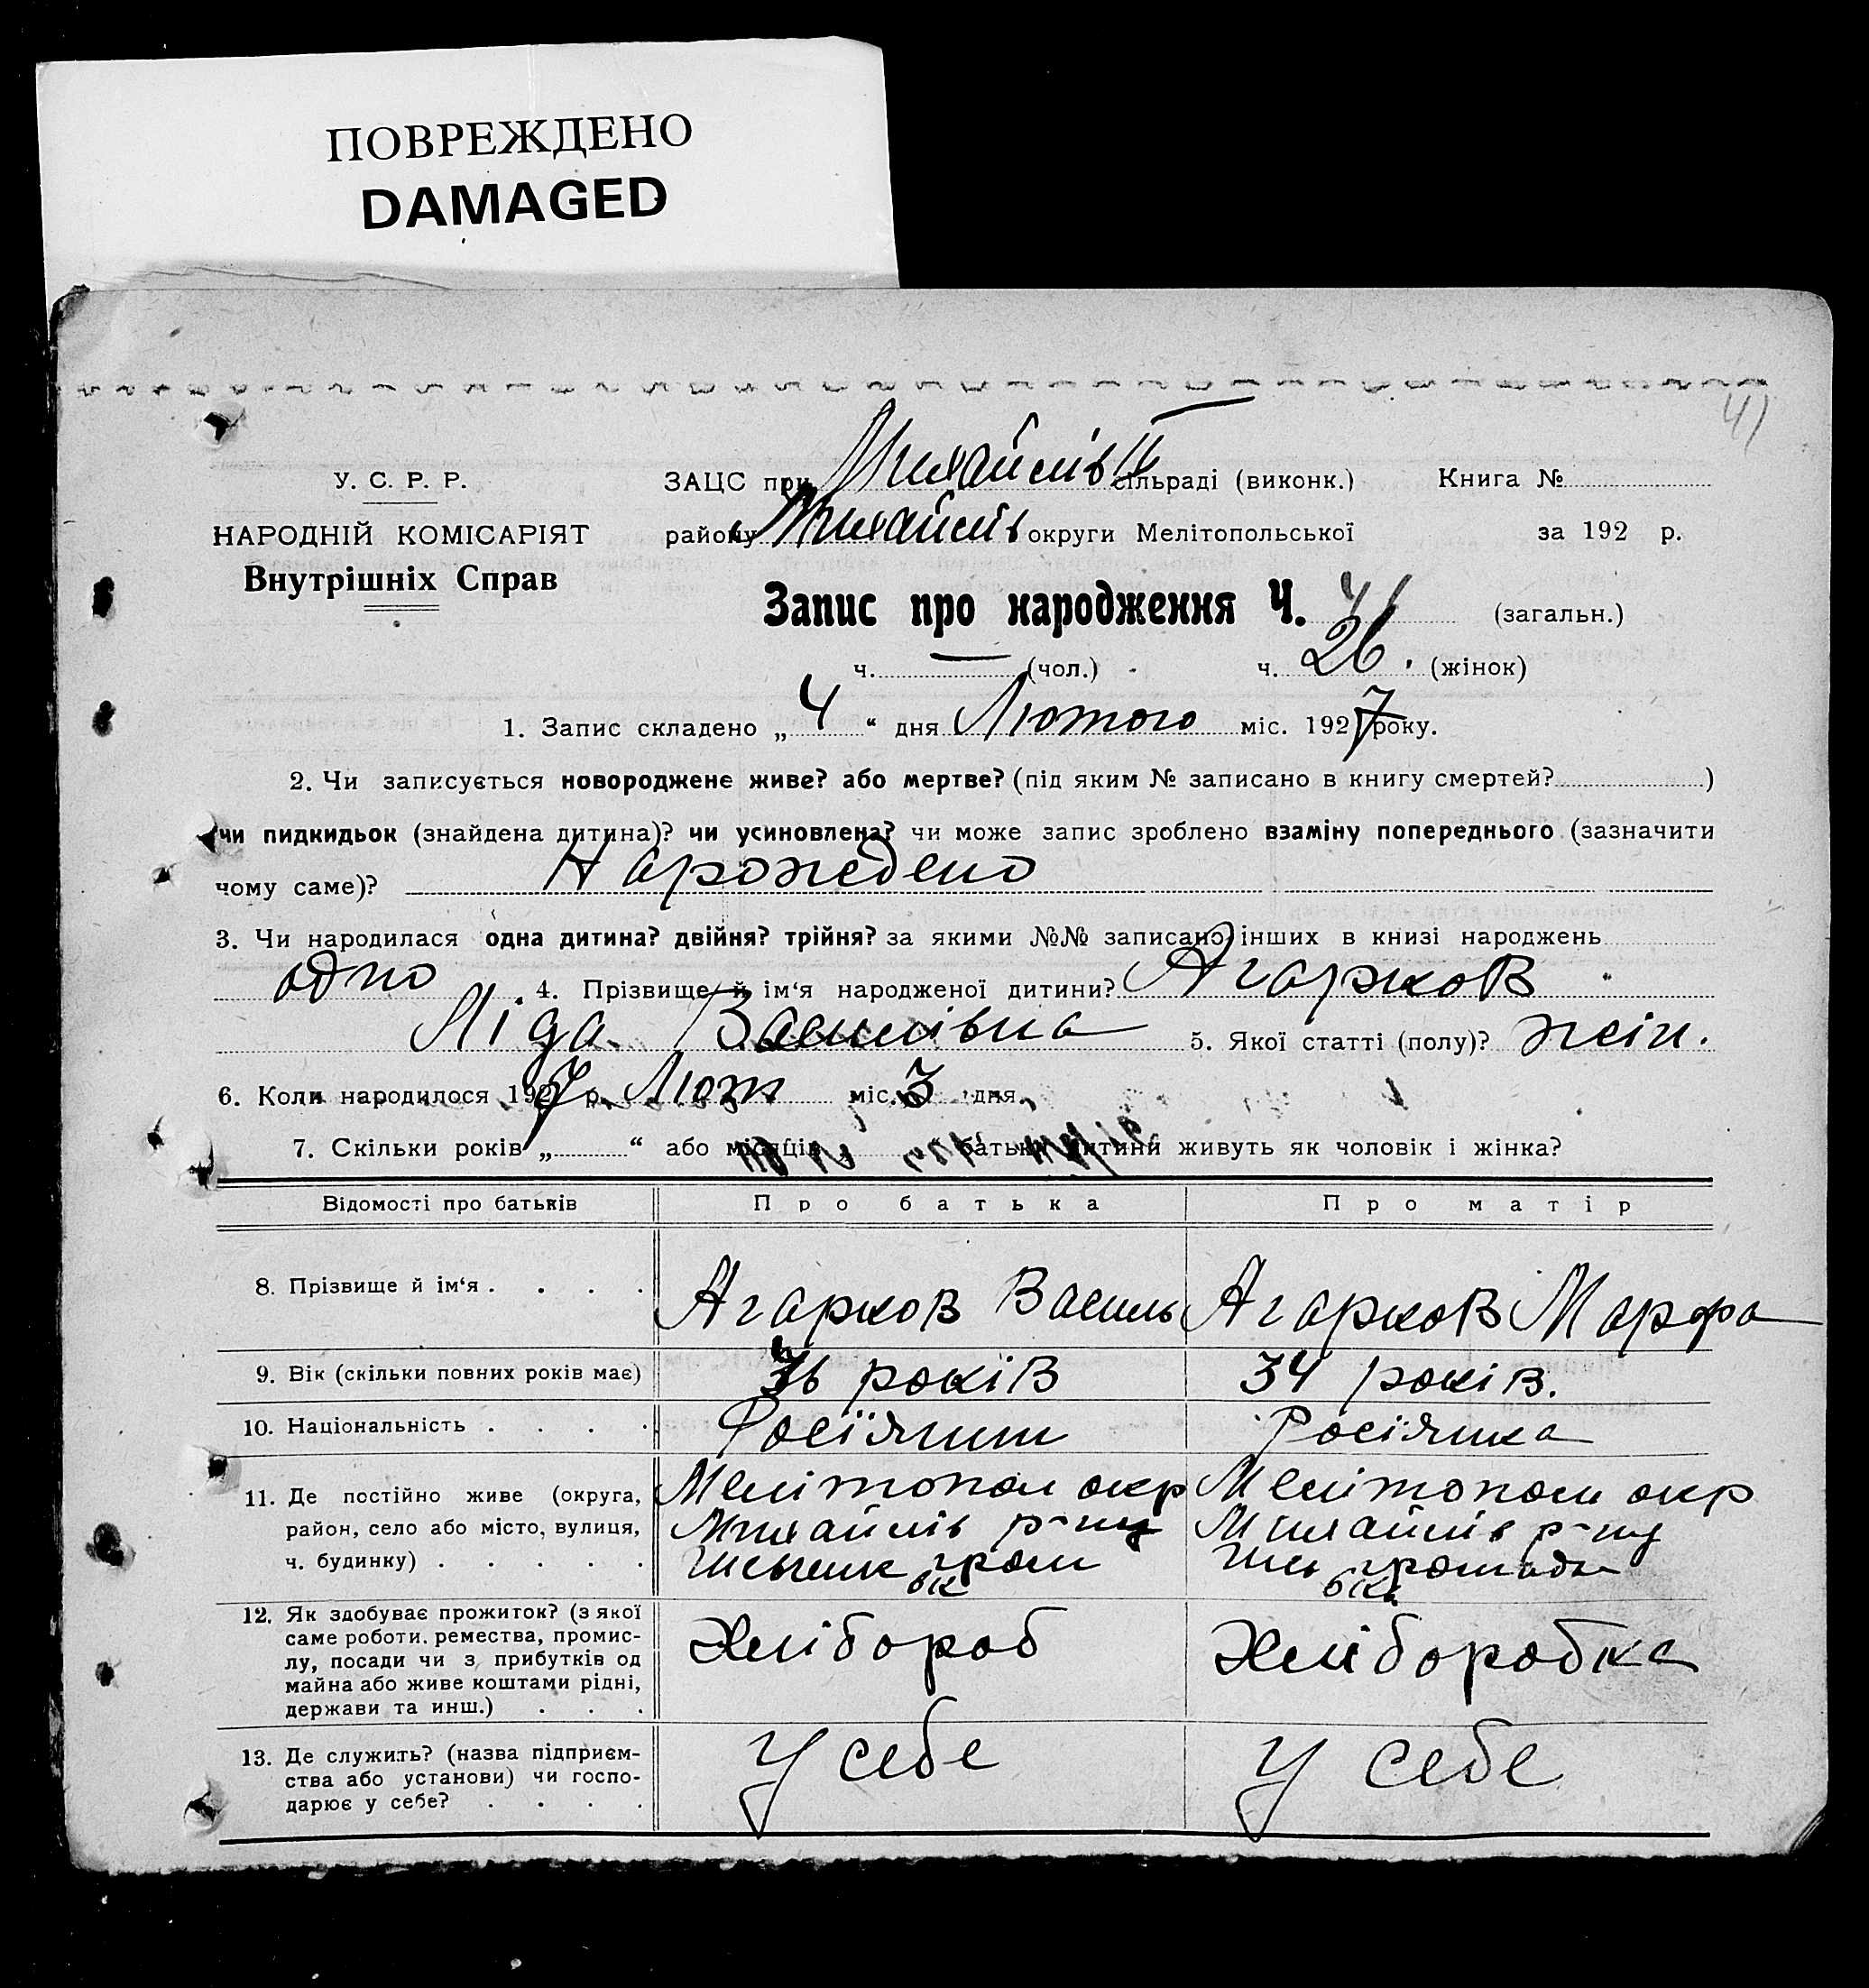 ПОВРЕЖДЕНО
DAMAGED
41
У. С. Р. Р.
НАРОДНІЙ КОМІСАРІЯТ
Внутрішніх Справ
ЗАЦС при Михайлів II сільраді (виконк.) Книга №
району Михайлів округи Мелітопольської за 192 р.
Запис про народження Ч. 41 (загальн.)
ч. — (чол.) ч. 26. (жінок)
1. Запис складено „ 4 “ дня Лютого міс. 1927 року.
2. Чи записується новороджене живе? або мертве? (під яким № записано в книгу смертей? )
чи пидкидьок (знайдена дитина)? чи усиновлена? чи може запис зроблено взаміну попереднього (зазначити
чому саме)? Нарождено
3. Чи народилася одна дитина? двійня? трійня? за якими №№ записано інших в книзі народжень
одно 4. Прізвище й ім‘я народженої дитини? Агарков
Ліда Василівна 5. Якої статті (полу)? жін.
6. Коли народилося 1927 р. Лют міс. 3 дня.
7. Скільки років „ “ або місяців „ “ батьки дитини живуть як чоловік і жінка?
Відомості про батьків Про батька Про матір
8. Прізвище й ім‘я . . . . Агарков Василь Агарков Марфа
9. Вік (скільки повних років має) 36 років 34 років.
10. Національність . . . . Росіянин Росіянка
11. Де постійно живе (округа, Мелітопол окр Мелітопол окр
район, село або місто, вулиця, Михайлів р-ну Михайлів р-ну
ч. будинку) . . . . . гром громади
12. Як здобуває прожиток? (з якої
саме роботи, ремества, промис- Хлібороб Хліборобка
лу, посади чи з прибутків од
майна або живе коштами рідні,
держави та инш.) . . .
13. Де служить? (назва підприєм- У себе У себе
ства або установи) чи госпо-
дарює у себе? . . . .